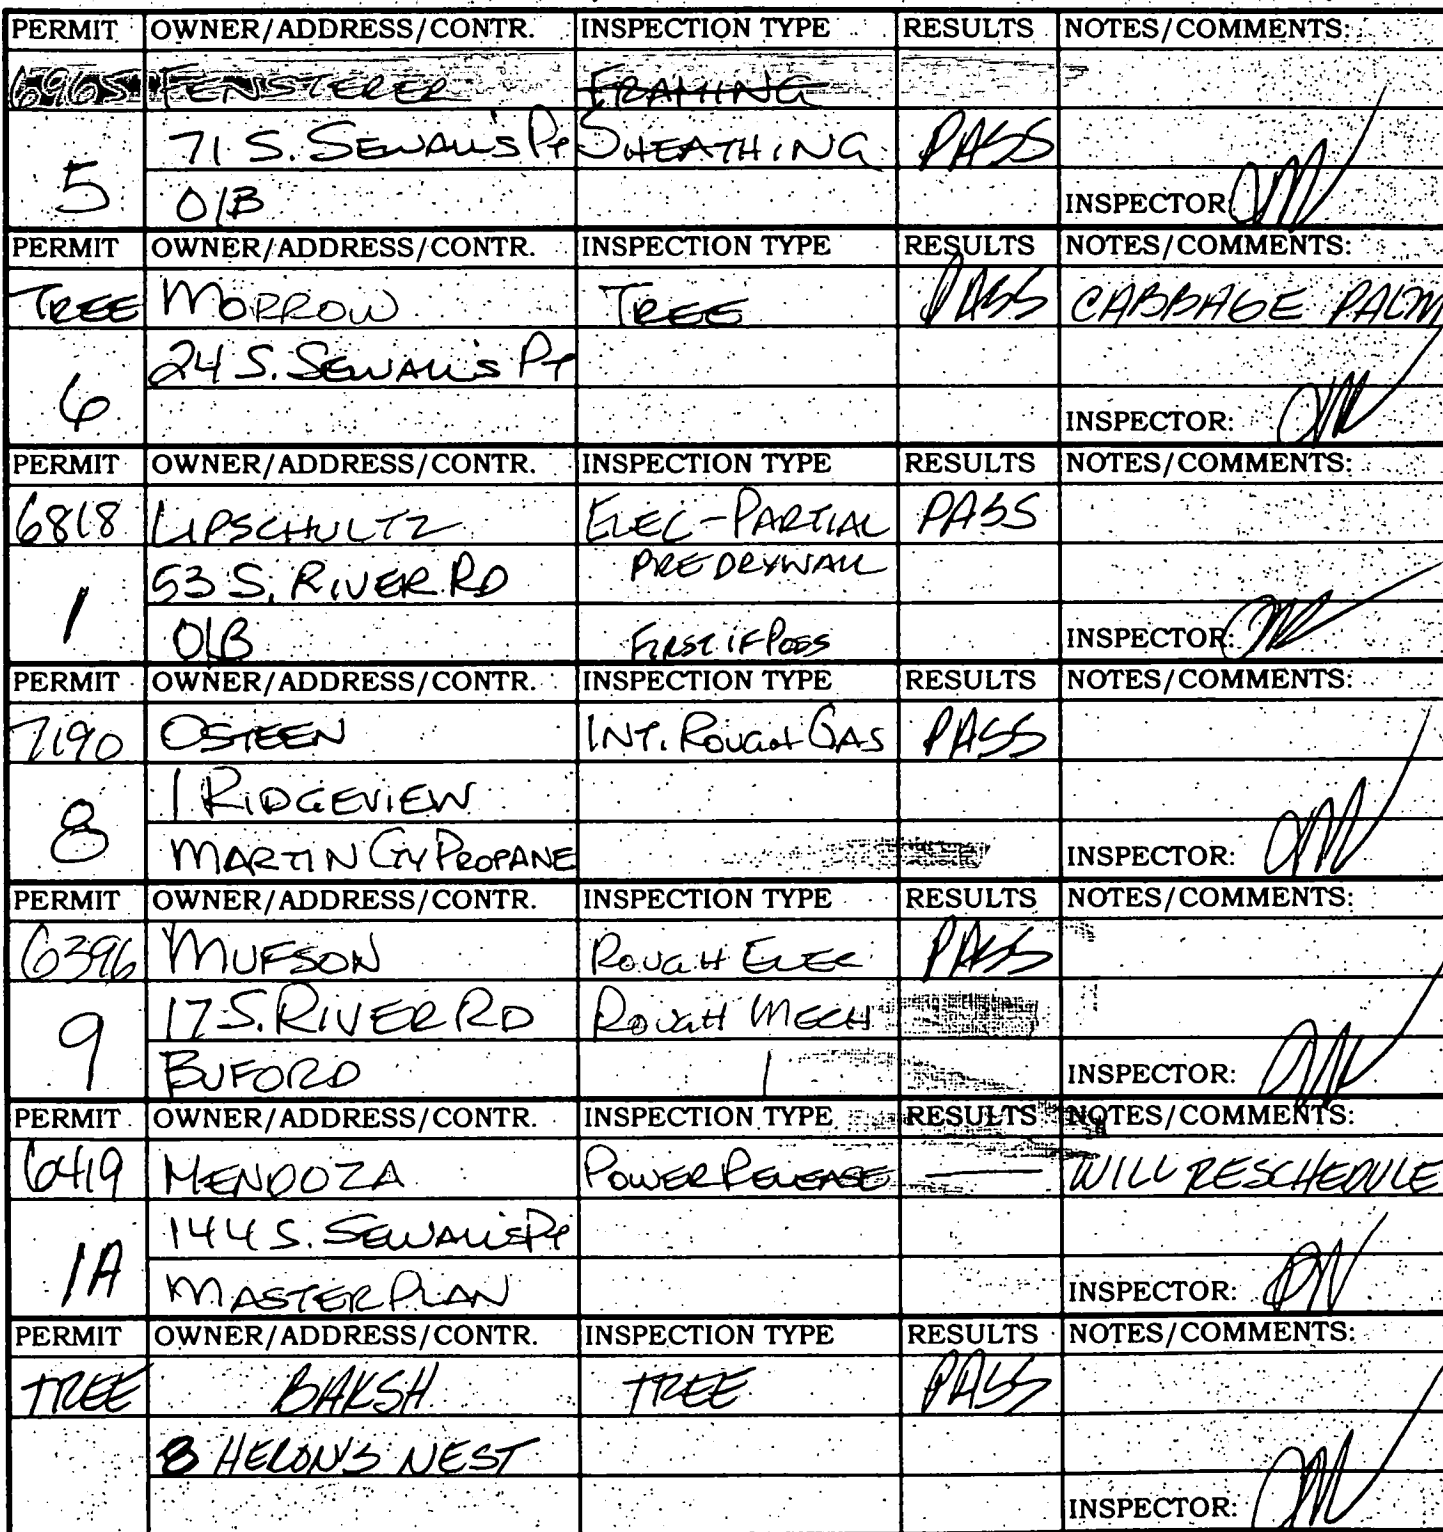 PERMIT OWNER/ADDRESS/CONTR. INSPECTION TYPE RESULTS NOTES/COMMENTS:
6965 FENSTERER FRAMING
71 S. SEWALL'S PT SHEATHING PASS
5 O/B INSPECTOR:
PERMIT OWNER/ADDRESS/CONTR. INSPECTION TYPE RESULTS NOTES/COMMENTS:
TREE MORROW TREE PASS CABBAGE PALM
24 S. SEWALL'S PT
6 INSPECTOR:
PERMIT OWNER/ADDRESS/CONTR. INSPECTION TYPE RESULTS NOTES/COMMENTS:
6818 LIPSCHULTZ ELEC-PARTIAL PASS
53 S. RIVER RD PREDRYWALL
1 O/B FIRST IF POSS INSPECTOR:
PERMIT OWNER/ADDRESS/CONTR. INSPECTION TYPE RESULTS NOTES/COMMENTS:
7190 OSTEEN INT. ROUGH GAS PASS
1 RIDGEVIEW
8 MARTIN CTY PROPANE INSPECTOR:
PERMIT OWNER/ADDRESS/CONTR. INSPECTION TYPE RESULTS NOTES/COMMENTS:
6396 MUFSON ROUGH ELEC PASS
17 S. RIVER RD ROUGH MECH
9 BUFORD INSPECTOR:
PERMIT OWNER/ADDRESS/CONTR. INSPECTION TYPE RESULTS NOTES/COMMENTS:
6419 MENDOZA POWER RELEASE — WILL RESCHEDULE
144 S. SEWALL'S PT
1A MASTERPLAN INSPECTOR:
PERMIT OWNER/ADDRESS/CONTR. INSPECTION TYPE RESULTS NOTES/COMMENTS:
TREE BAKSH TREE PASS
8 HERON'S NEST
INSPECTOR: